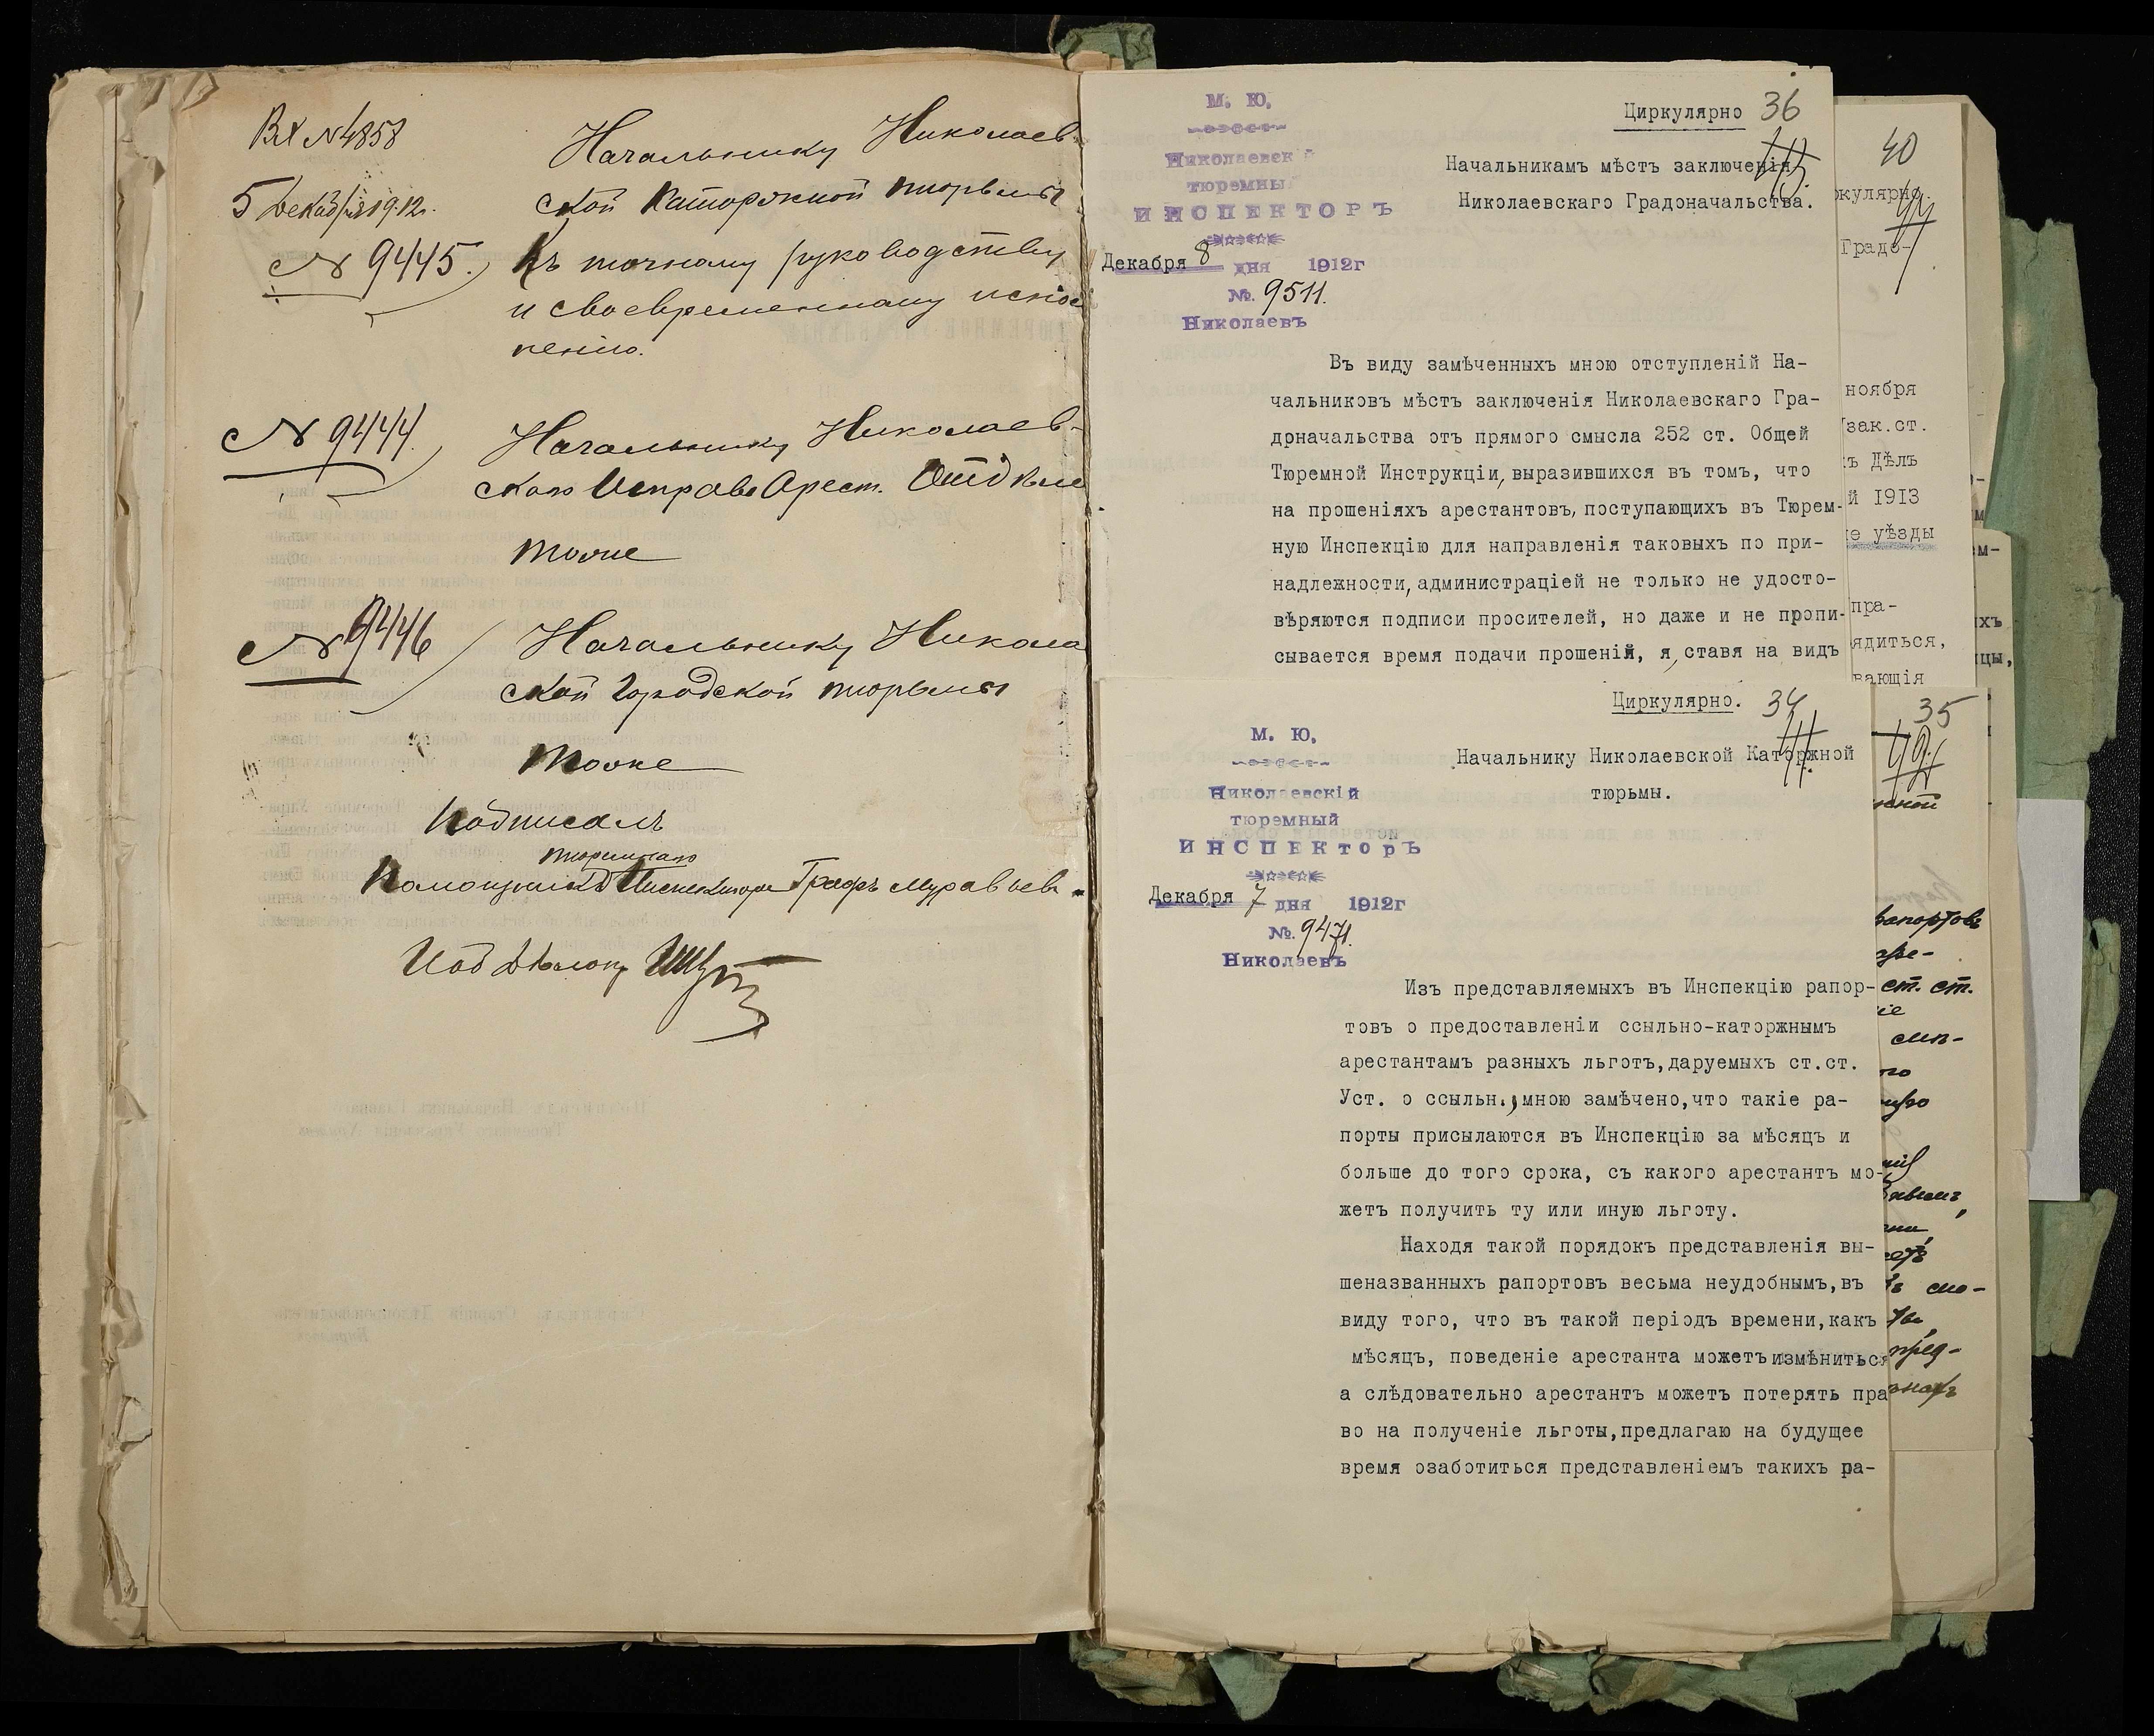 Вх №4858
5 декабря 1912г.
№ 9445.
Начальнику Николаев-
ской Каторжной тюрьмы
Къ точному руководству
и своевременному испол
ненію.
№ 9444.
Начальнику Николаев-
скаго Исправ. Арест. Отдѣле
тоже
№ 9446
Начальнику Никола
ской Городской тюрьмы
тоже
Подписалъ
тюремнаго
Помощникъ Инспектора Графъ Муравьевъ.
М. Ю.
Николаевскій
тюремный
ИНСПЕКТОРЪ
Декабря 8 дня 1912г
№. 9511.
Николаевъ
Циркулярно 36
Начальникамъ мѣстъ заключенія
Николаевскаго Градоначальства.
Въ виду замѣченныхъ мною отступленій На-
чальниковъ мѣстъ заключенія Николаевскаго Гра-
дрначальства отъ прямого смысла 252 ст. Общей
Тюремной Инструкціи, выразившихся въ томъ, что
на прошеніяхъ арестантовъ, поступающихъ въ Тюрем-
ную Инспекцію для направленія таковыхъ по при-
надлежности, администраціей не только не удосто-
вѣряются подписи просителей, но даже и не пропи-
сывается время подачи прошеній, я, ставя на видъ
40
ркулярно.
Градо-
ноября
зак.ст.
ъ Дѣлъ
й 1913
е уѣзды
пра-
ядиться,
вающія
М. Ю.
Николаевскій
тюремный
ИНСПЕКТОРЪ
Декабря 7 дня 1912г
№. 9471.
Николаевъ
Циркулярно. 34
Начальнику Николаевской Каторжной
тюрьмы.
Изъ представляемыхъ въ Инспекцію рапор-
товъ о предоставленіи ссыльно-каторжнымъ
арестантамъ разныхъ льготъ, даруемыхъ ст.ст.
Уст. о ссыльн., мною замѣчено, что такіе ра-
порты присылаются въ Инспекцію за мѣсяцъ и
больше до того срока, съ какого арестантъ мо-
жетъ получить ту или иную льготу.
Находя такой порядокъ представленія вы-
шеназванныхъ рапортовъ весьма неудобнымъ, въ
виду того, что въ такой періодъ времени, какъ
мѣсяцъ, поведеніе арестанта можетъ измѣниться
а слѣдовательно арестантъ можетъ потерять пра
во на полученіе льготы, предлагаю на будущее
время озаботиться представленіемъ такихъ ра-
35
рапортовъ
ст. ст.
пред-